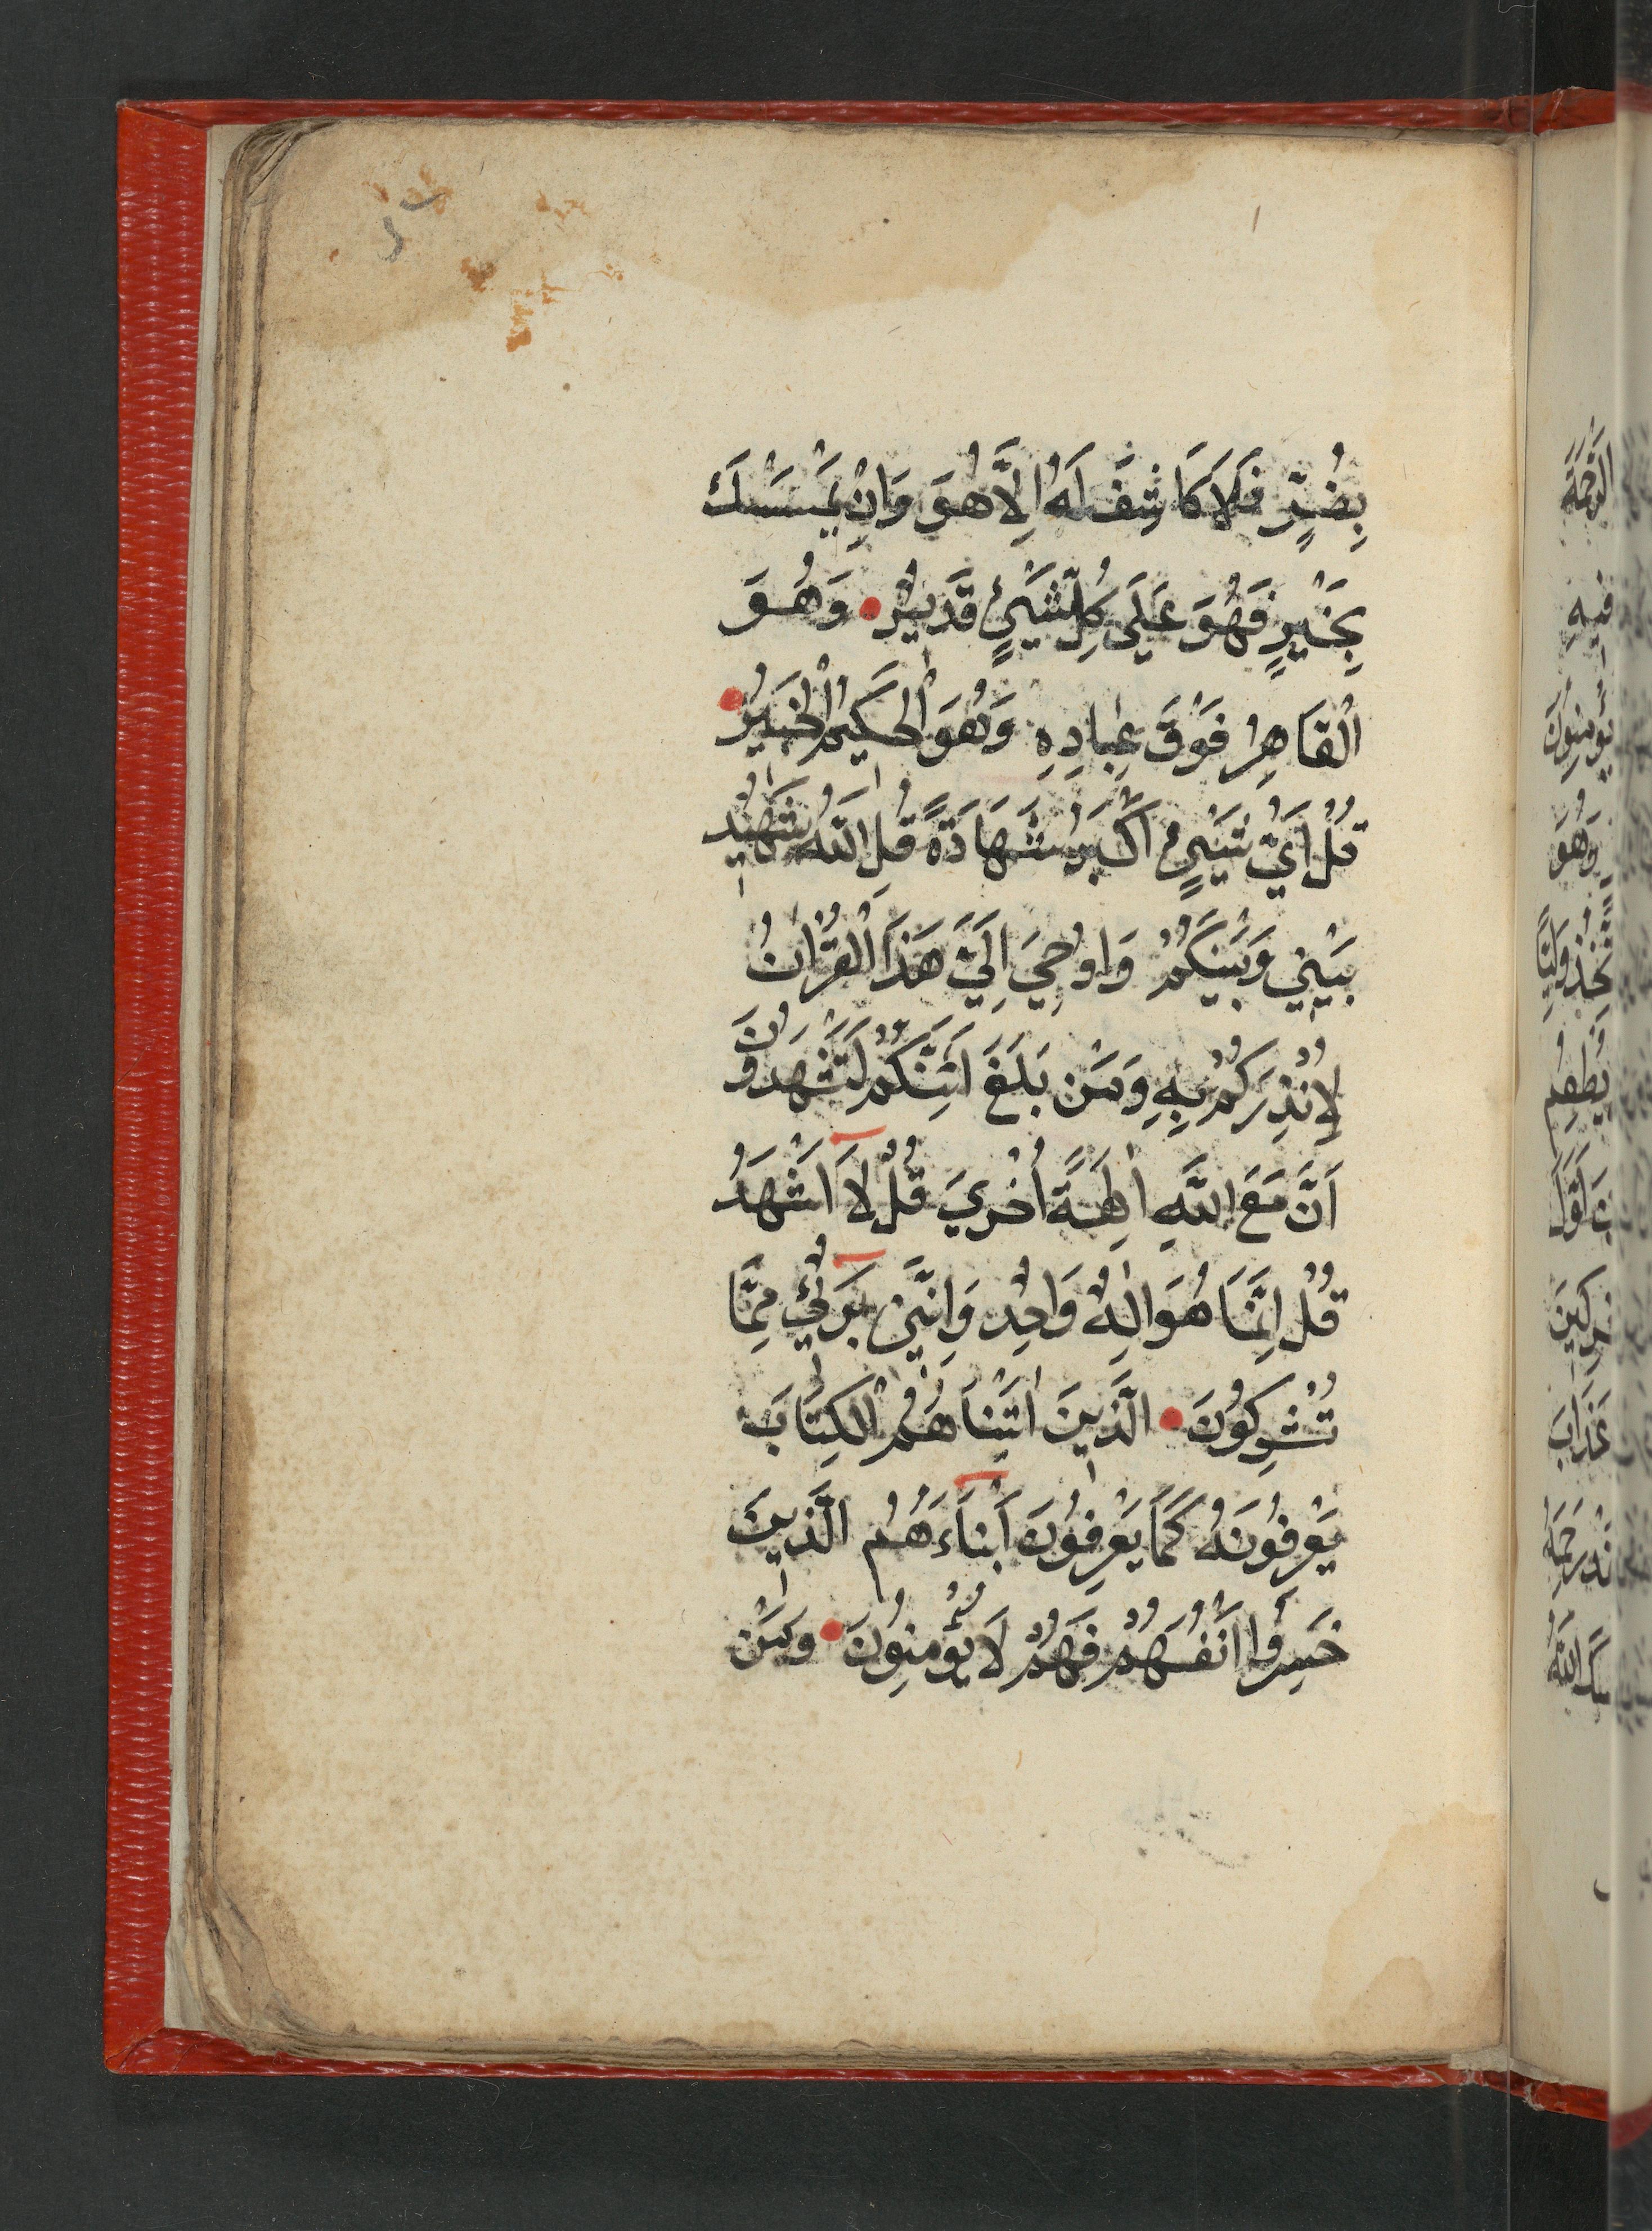 بِضُرٍّ فَلَا كَاشِفَ لَهُ اِلَّا هُوَ وَاِنْ يَمْسَسْكَ
بِخَيْرٍ فَهُوَ عَلَى كُلِّ شَيْئٍ قَدَيْرٌ وَهُوَ
الْقَاهِرُ فَوْقَ عِبَادِهِ وَهُوَ الْحَكَيْمُ الْخَبَيْرُ
قُلْ اَيُّ شَيْئٍ اَكْبَرُ شَهَادَةً قُلِ اللهُ شَهِيْدٌ
بَيْنِي وَبَيْنَكُمْ وَاُوحِيَ اِلَيَّ هَذَا الْقُرْاٰنُ
لِاُنْذِرَكُمْ بِهِ وَمَنْ بَلَغَ اَئِنَّكُمْ لَتَشْهَدُوْنَ
اَنَّ مَعَ اللَّهِ اٰلِهَةً اُخْرِيَ قُلْ لَا اَشْهَدُ
قُلْ اِنَّمَا هُوَ اِلٰهٌ وَاحِدٌ وَاِنَّنِيْ بَرَئٌ مِمَّا
تُشْرِكُوْنَ الَّذِينَ اٰتَيْنَاهُمُ الْكِتَابَ
يَعْرِفُوْنَهُ كَمَا يَعْرِفُوْنَ اَبْنَاءَهُمُ الَّذِينَ
خَسِرُوا اَنْفُسَهُمْ فَهُمْ لَا يُؤْمِنُوْنَ وَمَنْ
الرَّحْمَةَ
فِيهِ
يُؤْمِنُوْنَ
وَهُوَ